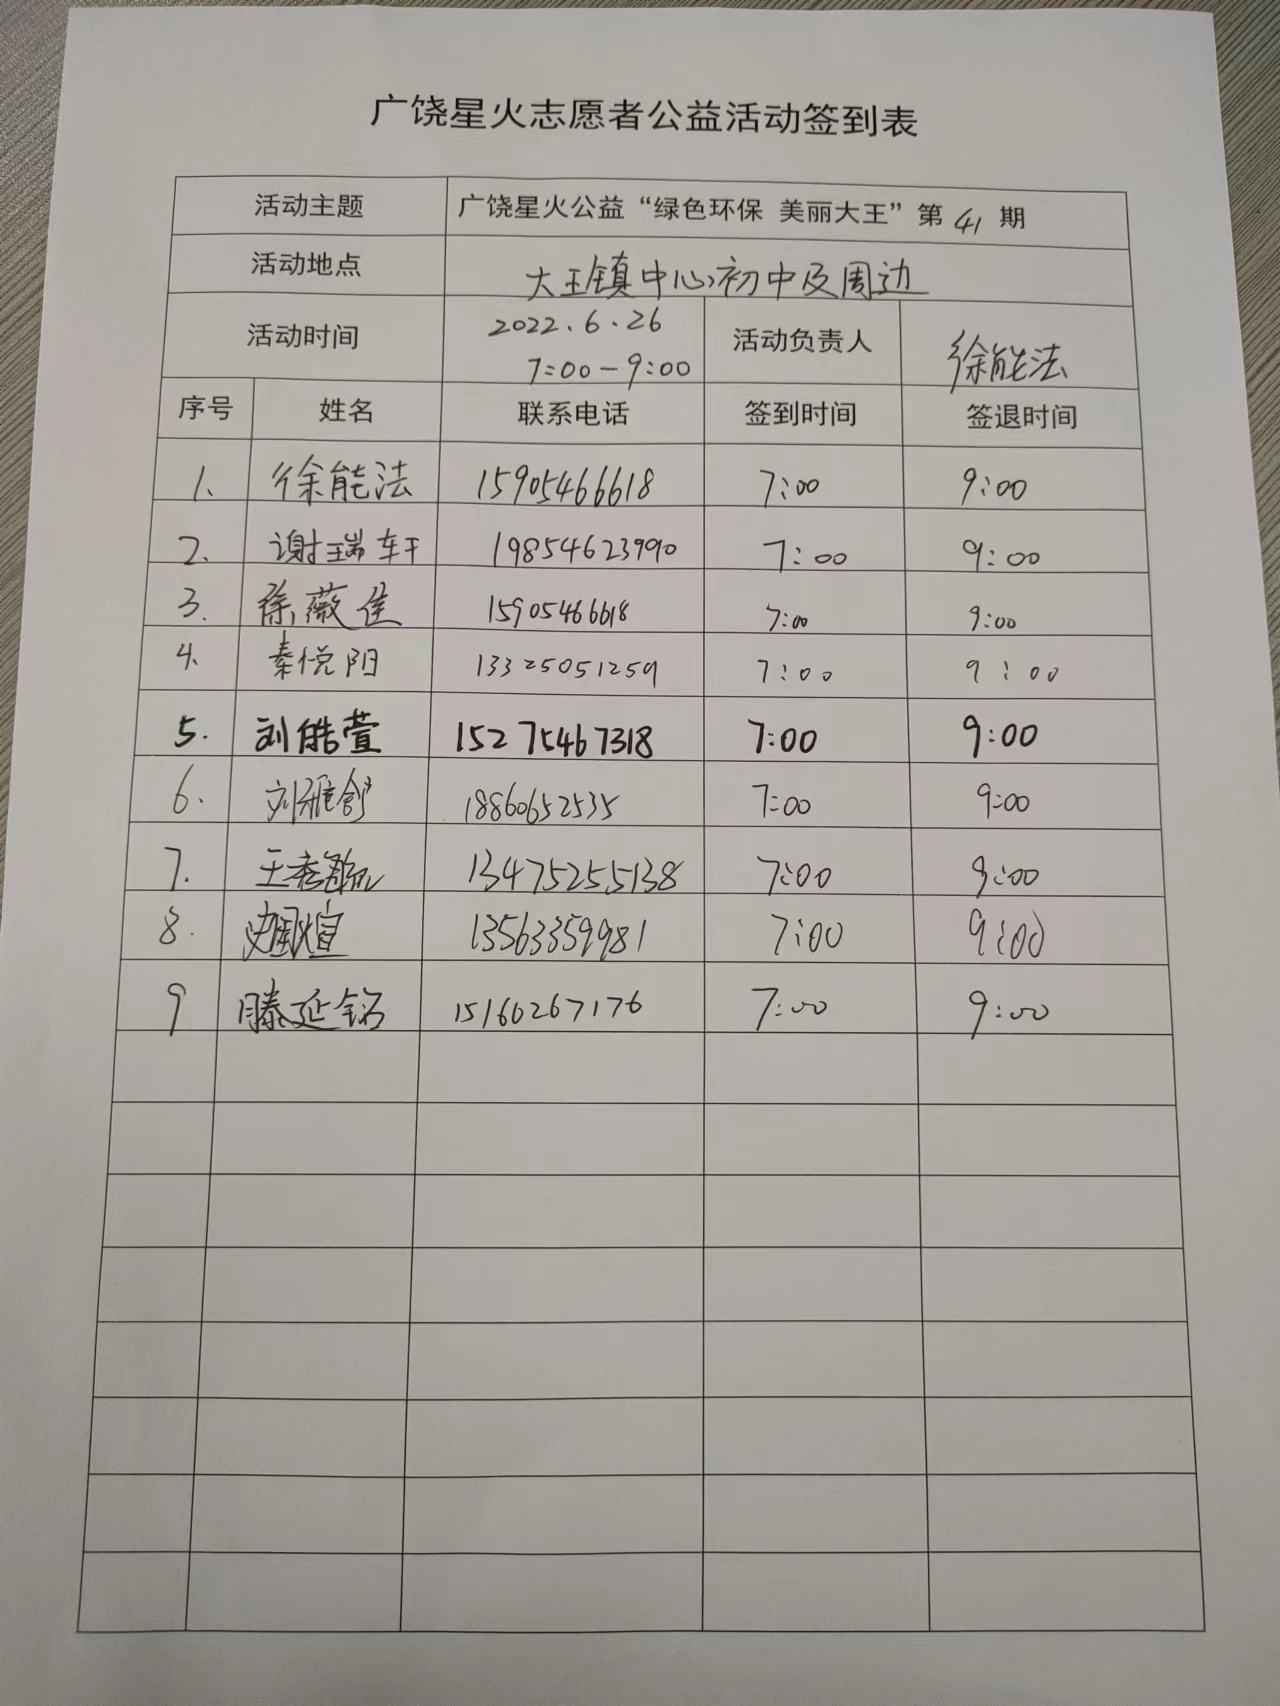 广饶星火志愿者公益活动签到表
活动主题 广饶星火公益“绿色环保 美丽大王”第 41 期
活动地点 大王镇中心初中及周边
活动时间 2022.6.26 7:00-9:00 活动负责人 徐能法
序号 姓名 联系电话 签到时间 签退时间
1、 徐能法 15905466618 7:00 9:00
2、 谢瑞轩 19854623990 7:00 9:00
3. 徐薇佳 15905466618 7:00 9:00
4、 秦悦阳 13325051259 7:00 9:00
5. 刘皓萱 15275467318 7:00 9:00
6. 刘雅舒 18860652535 7:00 9:00
7. 王 13475255138 7:00 9:00
8. 13563359981 7:00 9:00
9 滕延铭 15160267176 7:00 9:00